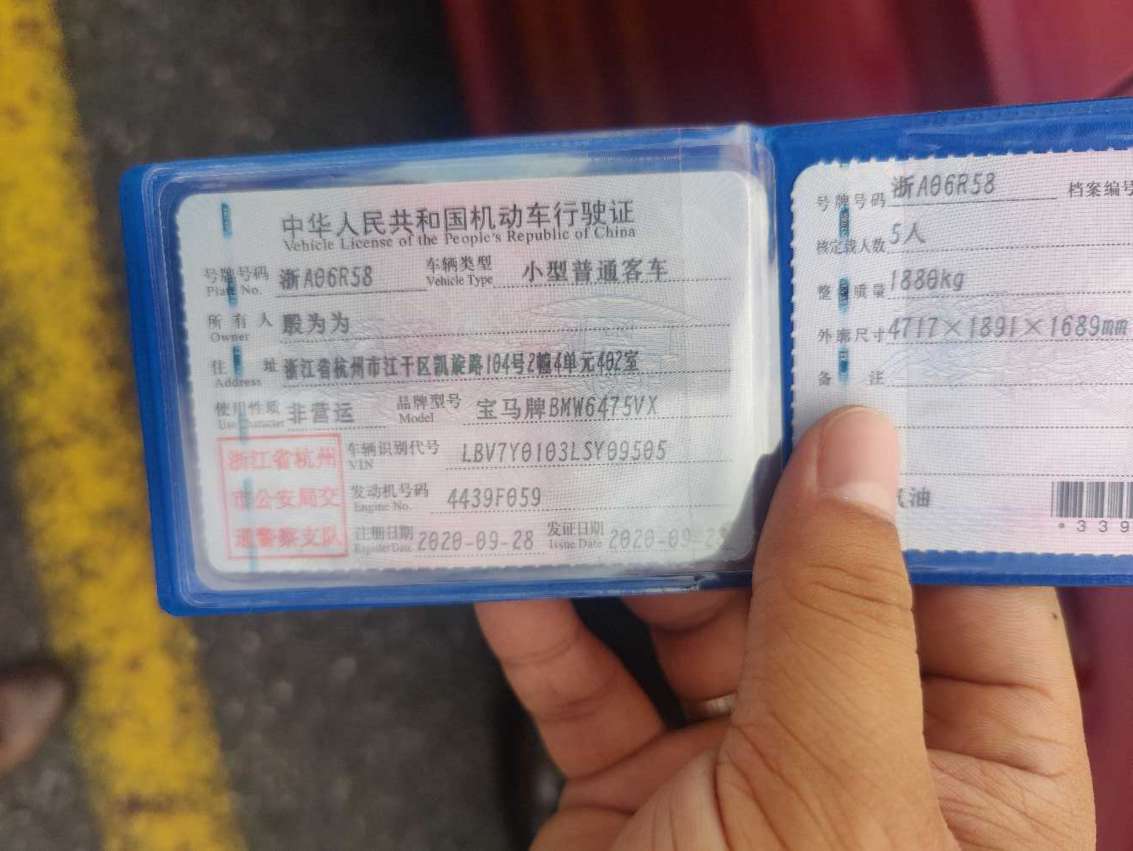 中华人民共和国机动车行驶证
Vehicle License of the People's Republic of China
号牌号码 浙A06R58 车辆类型 小型普通客车
Plate No. Vehicle Type
所有人 殷为为
Owner
住址 浙江省杭州市江干区凯旋路104号2幢4单元402室
Address
使用性质 非营运 品牌型号 宝马牌BMW6475VX
Use Character Model
浙江省杭州
市公安局交
通警察支队
车辆识别代号 LBV7Y0103LSY09505
VIN
发动机号码 4439F059
Engine No.
注册日期 2020-09-28 发证日期 2020-09-28
Register Date Issue Date
号牌号码 浙A06R58 档案编号
核定载人数 5人
整备质量 1880kg
外廓尺寸 4717×1891×1689mm
备注
油
*339